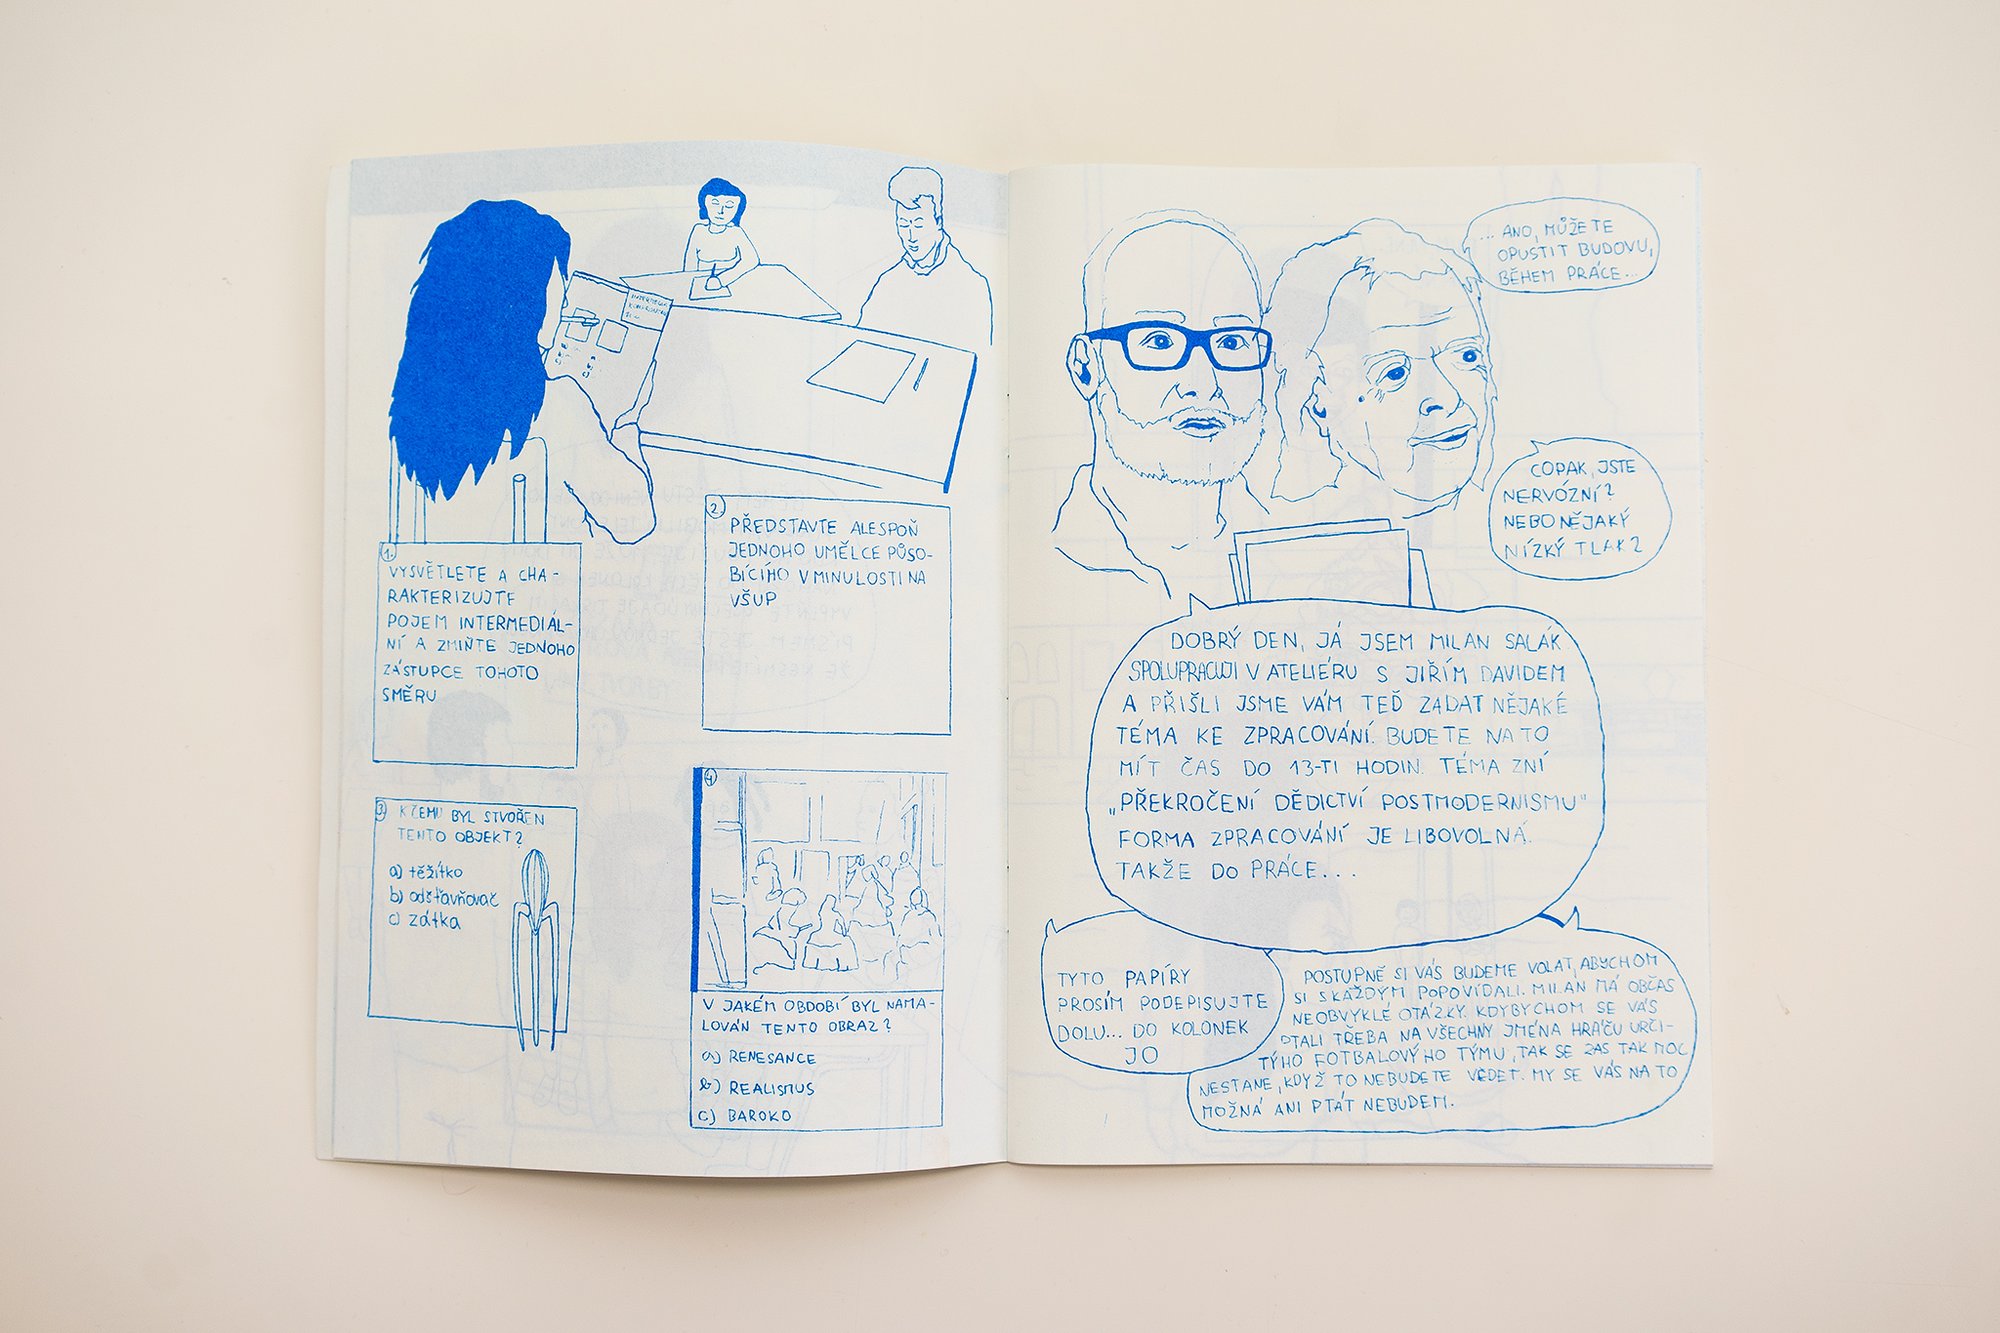 1.
VYSVĚTLETE A CHA-
RAKTERIZUJTE
POJEM INTERMEDIÁL-
NÍ A ZMIŇTE JEDNOHO
ZÁSTUPCE TOHOTO
SMĚRU
2.
PŘEDSTAVTE ALESPOŇ
JEDNOHO UMĚLCE PŮSO-
BÍCÍHO V MINULOSTI NA
VŠUP
3
K ČEMU BYL STVOŘEN
TENTO OBJEKT?
a) těžítko
b) odšťavňovač
c) zátka
4
V JAKÉM OBDOBÍ BYL NAMA-
LOVÁN TENTO OBRAZ?
a) RENESANCE
b) REALISMUS
c) BAROKO
... ANO, MŮŽETE
OPUSTIT BUDOVU,
BĚHEM PRÁCE...
COPAK, JSTE
NERVÓZNÍ?
NEBO NĚJAKÝ
NÍZKÝ TLAK?
DOBRÝ DEN, JÁ JSEM MILAN SALÁK
SPOLUPRACUJI V ATELIÉRU S JIŘÍM DAVIDEM
A PŘIŠLI JSME VÁM TEĎ ZADAT NĚJAKÉ
TÉMA KE ZPRACOVÁNÍ. BUDETE NA TO
MÍT ČAS DO 13-TI HODIN. TÉMA ZNÍ
„PŘEKROČENÍ DĚDICTVÍ POSTMODERNISMU"
FORMA ZPRACOVÁNÍ JE LIBOVOLNÁ.
TAKŽE DO PRÁCE...
TYTO PAPÍRY
PROSÍM PODEPISUJTE
DOLU... DO KOLONEK
JO
POSTUPNĚ SI VÁS BUDEME VOLAT, ABYCHOM
SI S KAŽDÝM POPOVÍDALI. MILAN MÁ OBČAS
NEOBVYKLÉ OTÁZKY. KDYBYCHOM SE VÁS
PTALI TŘEBA NA VŠECHNY JMÉNA HRÁČU URČI-
TÝHO FOTBALOVÝHO TÝMU, TAK SE ZAS TAK MOC
NESTANE, KDYŽ TO NEBUDETE VĚDĚT. MY SE VÁS NA TO
MOŽNÁ ANI PTÁT NEBUDEM.